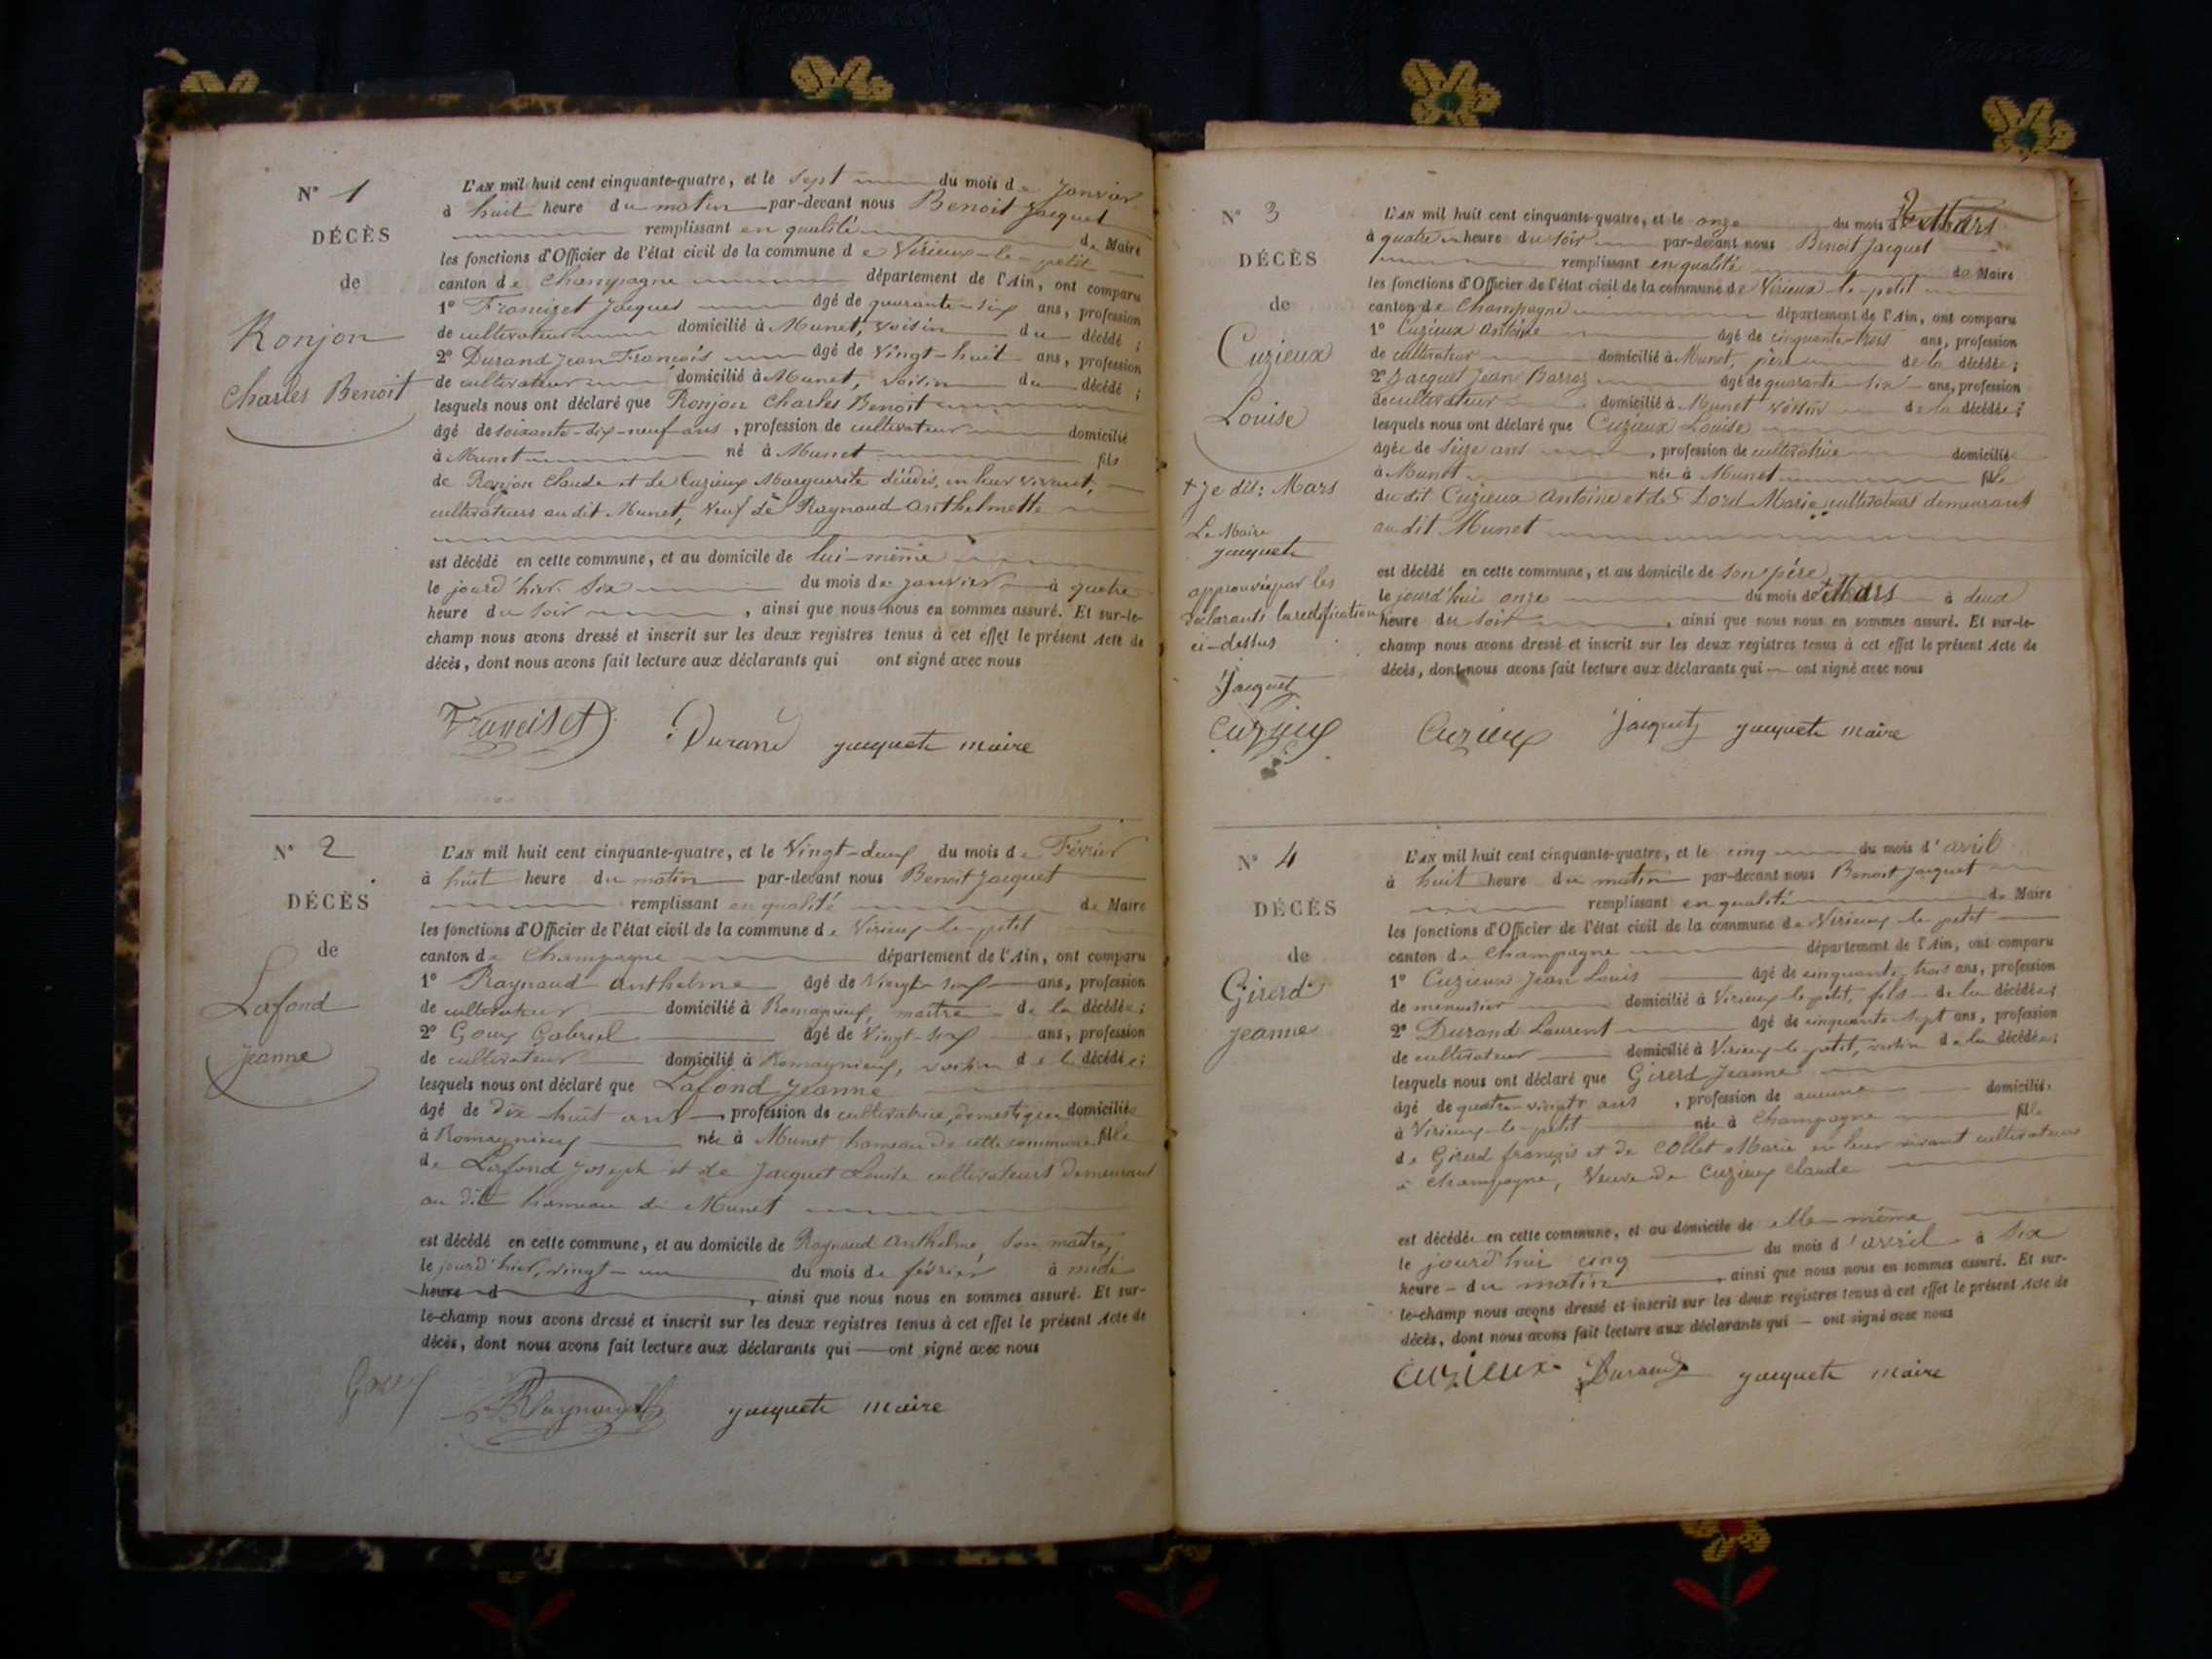 N° 1
DÉCÈS
de
Ronjon
Charles Benoit
L'AN mil huit cent cinquante-quatre, et le sept du mois de Janvier
à huit heure du matin par-devant nous Benoit Jacquet
remplissant en qualité de Maire
les fonctions d'Officier de l'état civil de la commune de Virieux-le-petit
canton de Champagne département de l'Ain, ont comparu
1° Franciset Jacques âgé de quarante-six ans, profession
de cultivateur domicilié à Munet, voisin du décédé ;
2° Durand Jean François âgé de vingt-huit ans, profession
de cultivateur domicilié à Munet, voisin du décédé ;
lesquels nous ont déclaré que Ronjon Charles Benoit
âgé de soixante-dix-neuf ans, profession de cultivateur domicilié
à Munet né à Munet fils
de Ronjon Claude et de Cuzieux Marguerite décédés, en leur vivant,
cultivateurs au dit Munet, veuf de Raynaud Anthelmette
est décédé en cette commune, et au domicile de lui-même
le jourd'hier six du mois de janvier à quatre
heure du soir, ainsi que nous nous en sommes assuré. Et sur-le-
champ nous avons dressé et inscrit sur les deux registres tenus à cet effet le présent Acte de
décès, dont nous avons fait lecture aux déclarants qui ont signé avec nous
Franciset Durand jacquet maire
N° 2
DÉCÈS
de
Lafond
Jeanne
L'AN mil huit cent cinquante-quatre, et le Vingt-deux du mois de Février
à huit heure du matin par-devant nous Benoit Jacquet
remplissant en qualité de Maire
les fonctions d'Officier de l'état civil de la commune de Virieux-le-petit
canton de Champagne département de l'Ain, ont comparu
1° Raynaud Anthelme âgé de Vingt-six ans, profession
de cultivateur domicilié à Romagnieux, maître de la décédée ;
2° Goux Gabriel âgé de Vingt-six ans, profession
de cultivateur domicilié à Romagnieux, voisin de la décédée ;
lesquels nous ont déclaré que Lafond Jeanne
âgé de dix-huit ans, profession de cultivatrice, domestique domiciliée
à Romagnieux née à Munet hameau de cette commune fille
de Lafond Joseph et de Jacquet Louise cultivateurs demeurant
au dit hameau de Munet
est décédé en cette commune, et au domicile de Raynaud Anthelme, son maître,
le jourd'hier, vingt-un du mois de février à midi
heure d , ainsi que nous nous en sommes assuré. Et sur-
le-champ nous avons dressé et inscrit sur les deux registres tenus à cet effet le présent Acte de
décès, dont nous avons fait lecture aux déclarants qui ont signé avec nous
Goux Raynaud jacquet maire
N° 3
DÉCÈS
de
Cuzieux
Louise
+ je dis : Mars
Le Maire
jacquet
approuvée par les
Déclarants la rectification
ci-dessus
Jacquet
Cuzieux
L'AN mil huit cent cinquante-quatre, et le onze du mois de Mars
à quatre heure du soir par-devant nous Benoit Jacquet
remplissant en qualité de Maire
les fonctions d'Officier de l'état civil de la commune de Virieux-le-petit
canton de Champagne département de l'Ain, ont comparu
1° Cuzieux Antoine âgé de cinquante-trois ans, profession
de cultivateur domicilié à Munet, père de la décédée ;
2° Jacquet Jean Barraz âgé de quarante-six ans, profession
de cultivateur domicilié à Munet voisin de la décédée ;
lesquels nous ont déclaré que Cuzieux Louise
âgée de seize ans, profession de cultivatrice domiciliée
à Munet née à Munet fille
du dit Cuzieux Antoine et de Lord Marie cultivateurs demeurant
au dit Munet
est décédé en cette commune, et au domicile de son père
le jourd'hui onze du mois de + Mars à deux
heure du soir, ainsi que nous nous en sommes assuré. Et sur-le-
champ nous avons dressé et inscrit sur les deux registres tenus à cet effet le présent Acte de
décès, dont nous avons fait lecture aux déclarants qui ont signé avec nous
Cuzieux Jacquet jacquet maire
N° 4
DÉCÈS
de
Girerd
Jeanne
L'AN mil huit cent cinquante-quatre, et le cinq du mois d'avril
à huit heure du matin par-devant nous Benoit Jacquet
remplissant en qualité de Maire
les fonctions d'Officier de l'état civil de la commune de Virieux-le-petit
canton de Champagne département de l'Ain, ont comparu
1° Cuzieux Jean Louis âgé de cinquante-trois ans, profession
de menuisier domicilié à Virieux-le-petit, fils de la décédée ;
2° Durand Laurent âgé de cinquante-sept ans, profession
de cultivateur domicilié à Virieux-le-petit, voisin de la décédée ;
lesquels nous ont déclaré que Girerd Jeanne
âgé de quatre-vingts ans, profession de aucune domiciliée
à Virieux-le-petit née à Champagne fille
de Girerd françois et de Collet Marie en leur vivant cultivateurs
à Champagne, Veuve de Cuzieux Claude
est décédée en cette commune, et au domicile de elle-même
le jourd'hui cinq du mois d'avril à six
heure du matin, ainsi que nous nous en sommes assuré. Et sur-
le-champ nous avons dressé et inscrit sur les deux registres tenus à cet effet le présent Acte de
décès, dont nous avons fait lecture aux déclarants qui ont signé avec nous
Cuzieux Durand jacquet maire